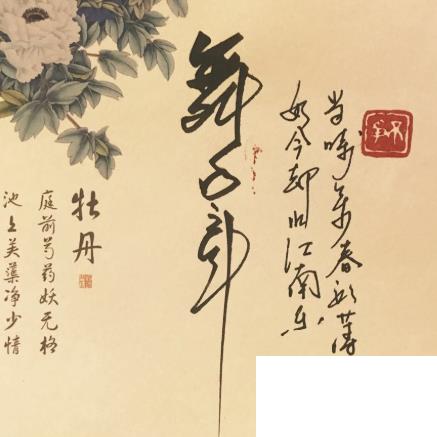 当时年少春衫薄
如今却忆江南乐
牡丹
庭前芍药妖无格
池上芙蕖净少情